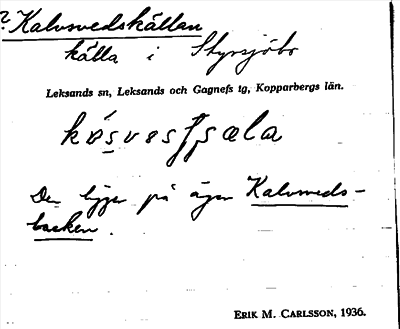 ? Kalvsvedskällan
källa i Styrsjöbo
Leksands sn, Leksands och Gagnefs tg, Kopparbergs län.
Den ligger på ägan Kalvsveds-
backen.
ERIK M. CARLSSON, 1936.